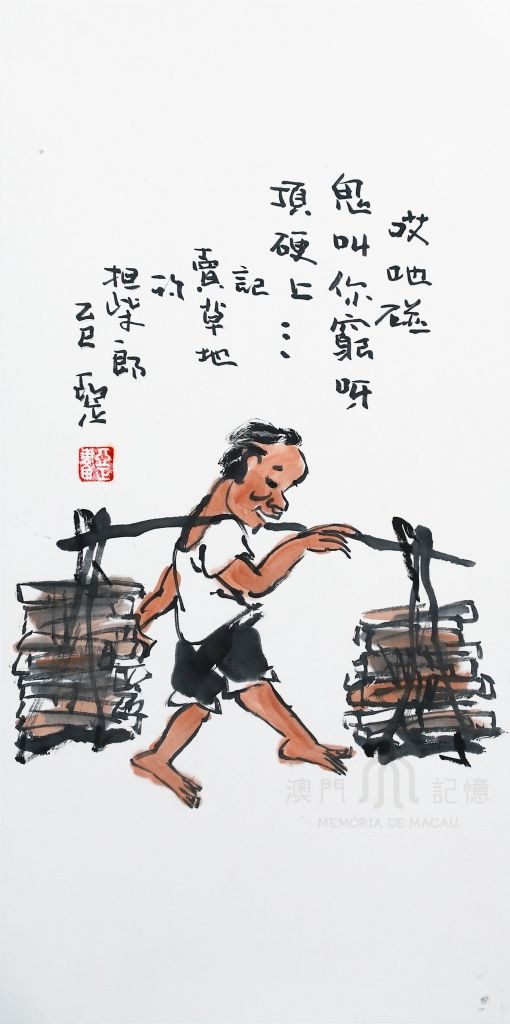 哎吔
鬼叫你窮呀
頂硬上...
記
賣草地
担柴郎
乙巳
澳門記憶
MEMÓRIA DE MACAU